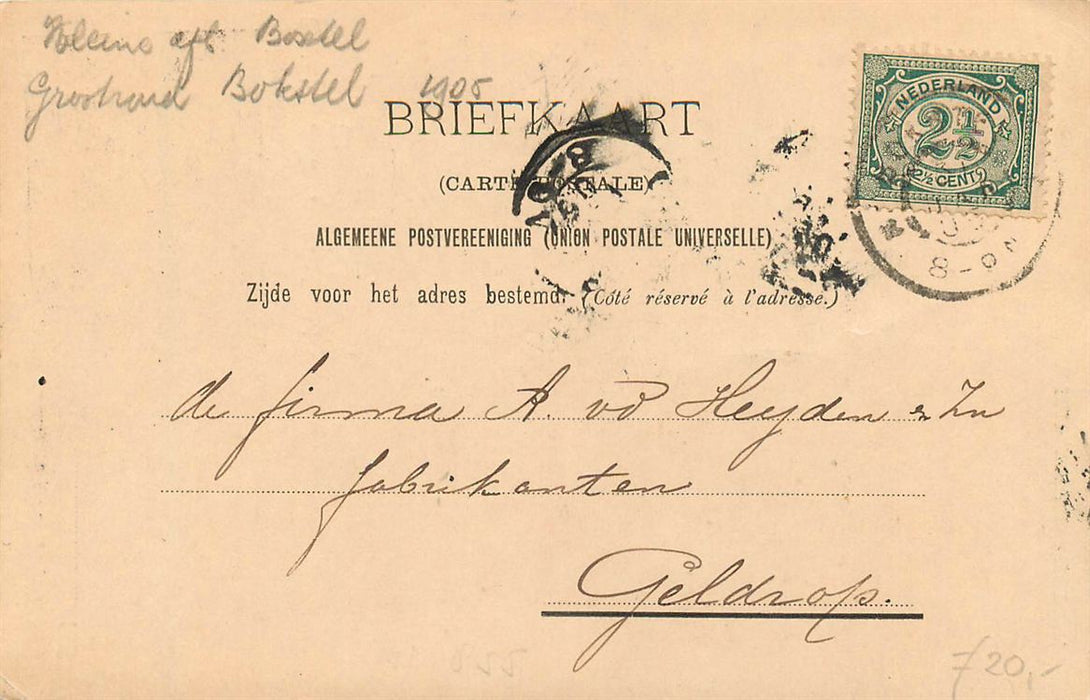 Kleine afst Boxtel
Grootrond Bokstel 1905
BRIEFKAART
(CARTE POSTALE)
ALGEMEENE POSTVEREENIGING (UNION POSTALE UNIVERSELLE)
Zijde voor het adres bestemd. (Côté réservé à l'adresse.)
NEDERLAND
2½
2½ CENT
de firma A. vd Heyden & Zn
fabrikanten
Geldrop.
f 20,-